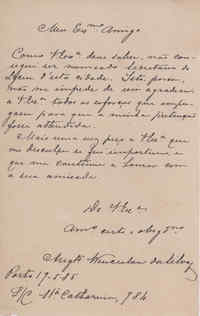 Meu Ex.mo Amigo
Como V Ex.a deve saber, não con-
segui ser nomeado secretario do
Lyceu d'esta cidade. Isto porem
não me impede de vir agradecer
a V Ex.a todos os esforços que empre-
gou para que a minha pretenção
fosse attendida.
Mais uma vez peço a V Ex.a que
me desculpe se fui importuno e
que me continue a honrar com
a sua amizade.
De V Ex.a
Am.o certo e obrg.mo
Augto
Porto 19-5-85
S/C Sta Catharina, 984